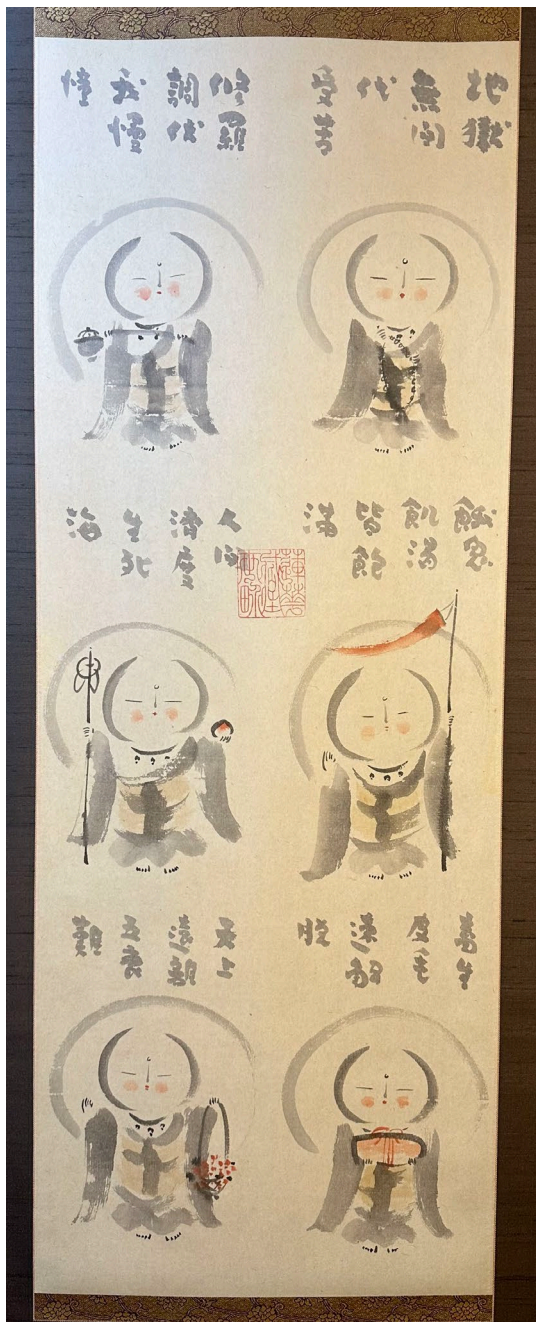 地獄
無間
代
受苦
修羅
調伏
我慢
幢
餓鬼
飢渇
皆飽
満
人間
濟度
生死
海
畜生
皮毛
速解
脱
天上
遠離
五衰
難